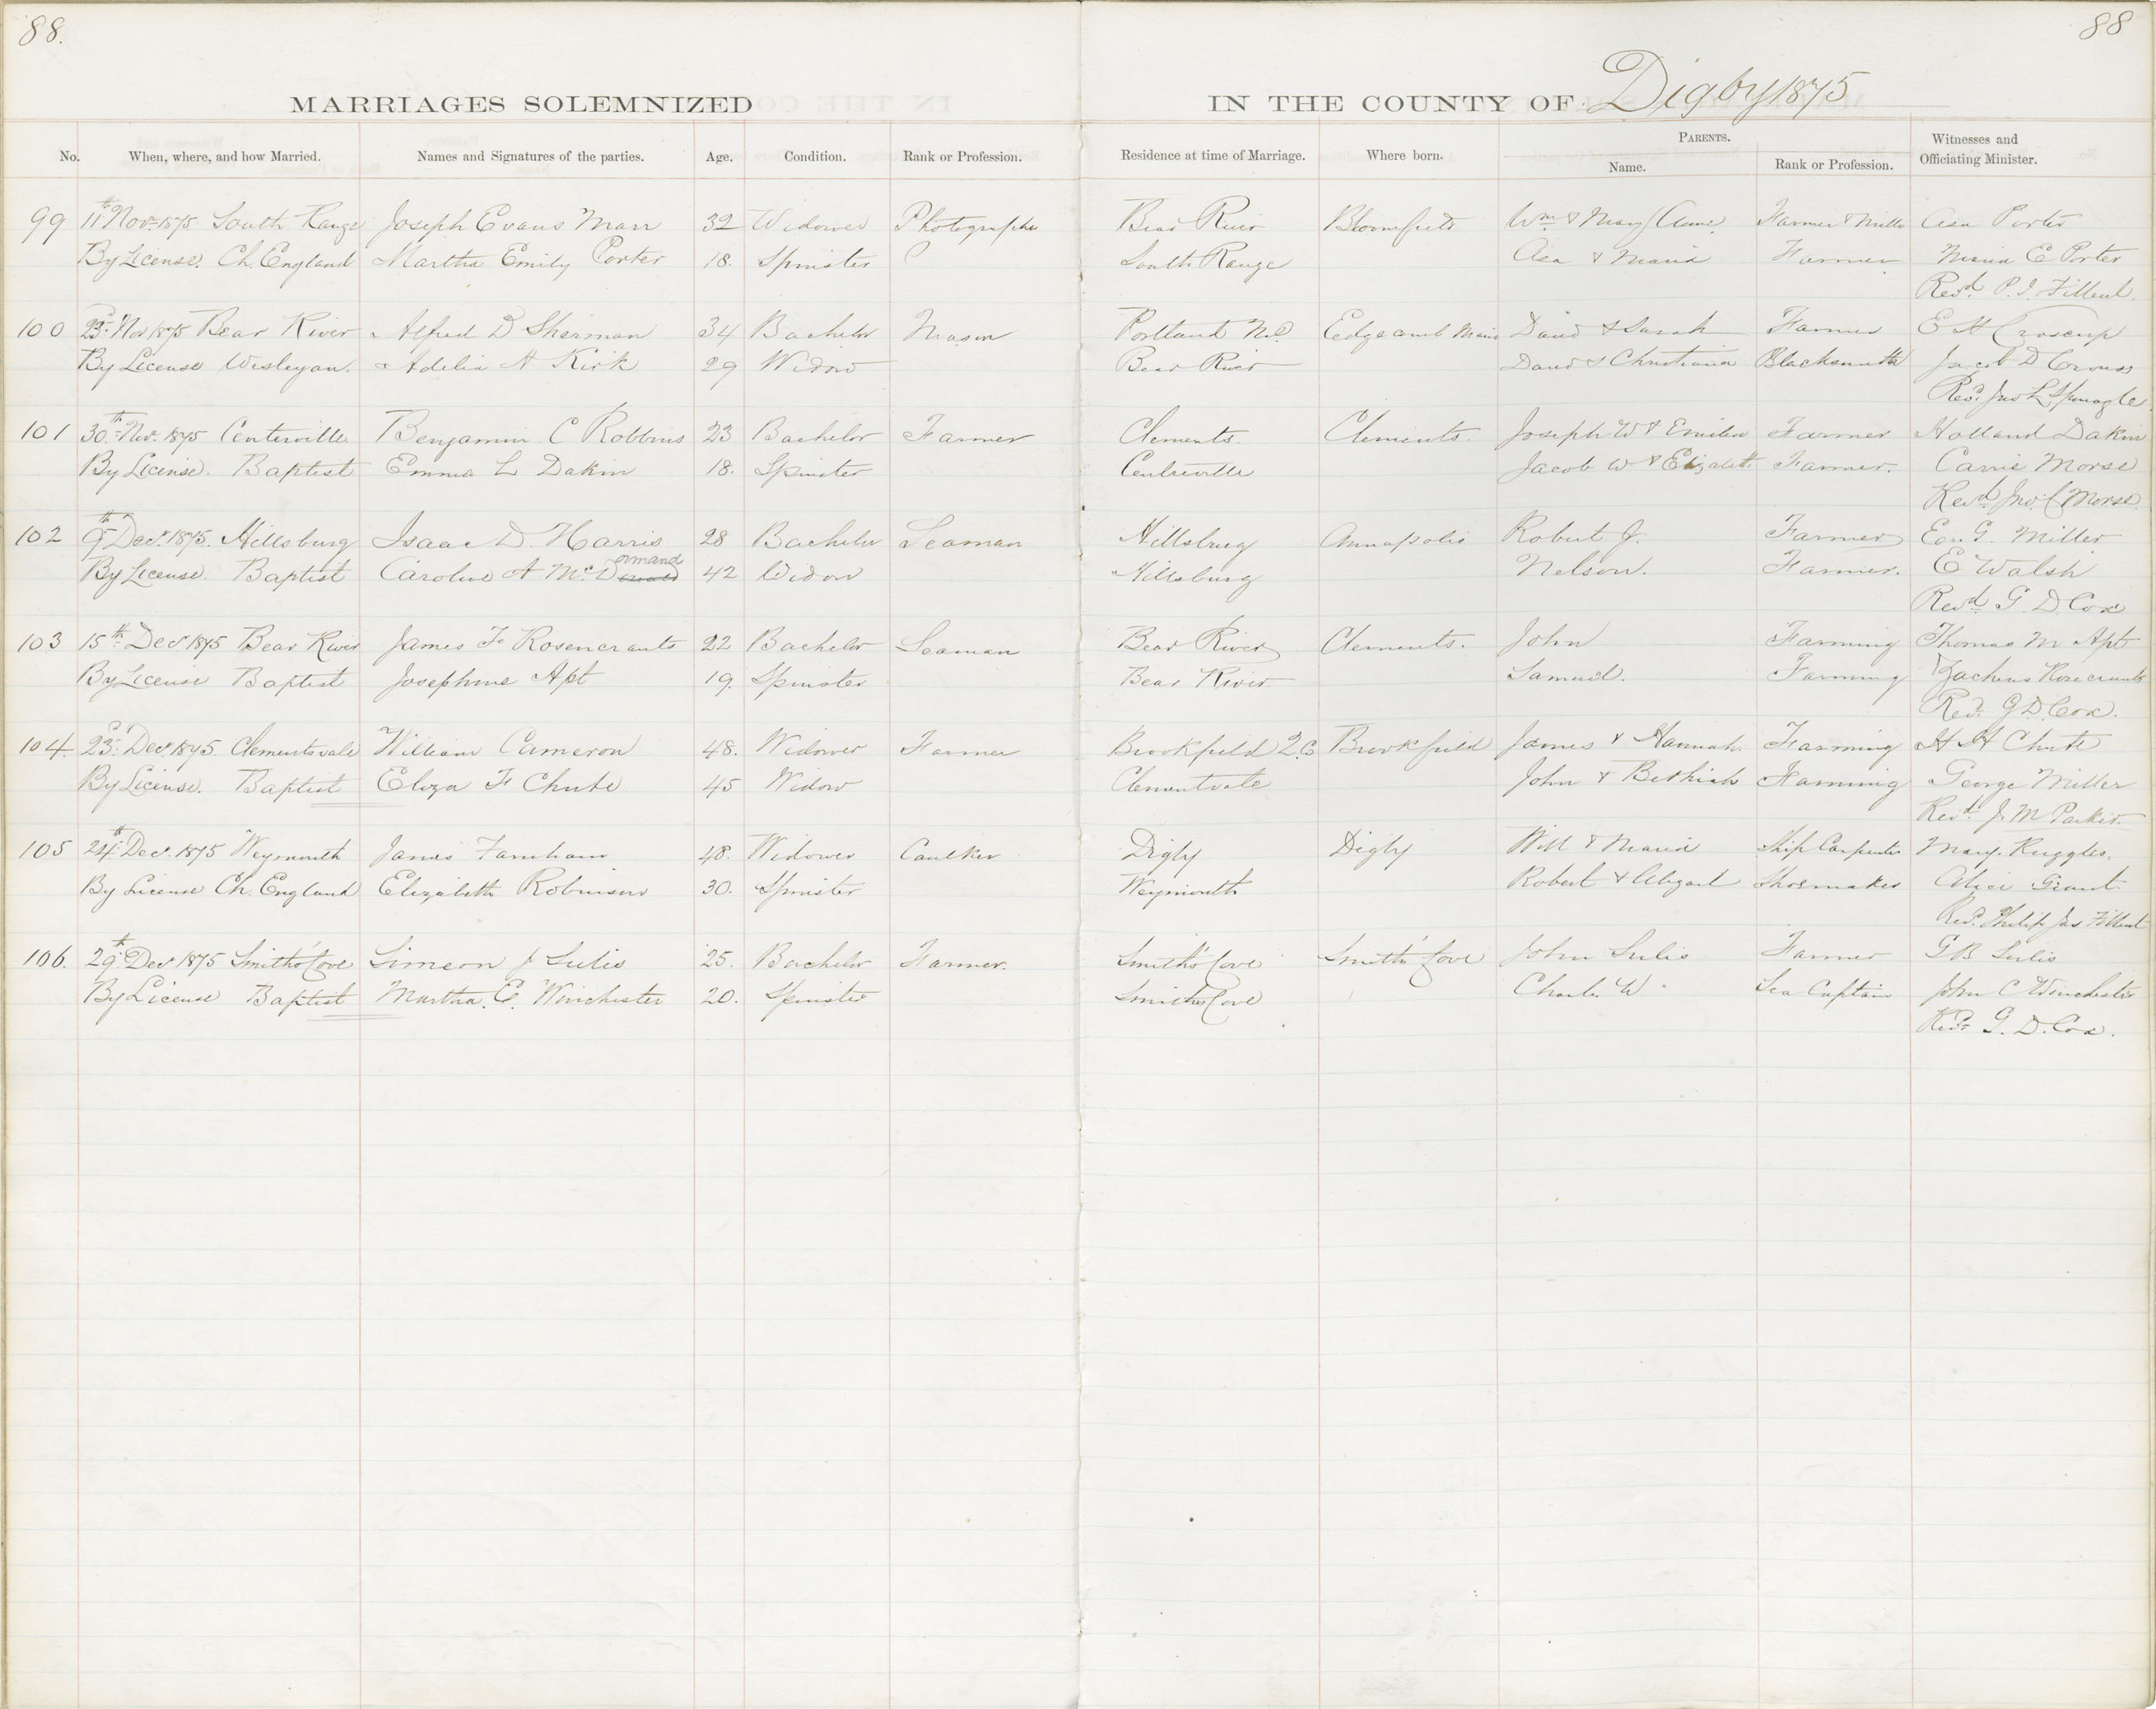 88.
88
MARRIAGES SOLEMNIZED IN THE COUNTY OF Digby 1875
No. When, where, and how Married. Names and Signatures of the parties. Age. Condition. Rank or Profession. Residence at time of Marriage. Where born. PARENTS. Name. Rank or Profession. Witnesses and Officiating Minister.
99 11th Nov. 1875 South Range Joseph Evans Marr 32 Widower Photographer Bear River Bloomfield Wm & Mary Anne Farmer & Miller Asa Porter
By License. Ch. England Martha Emily Porter 18. Spinster South Range Asa & Maria Farmer E Porter
Revd. P. J. Filleul.
100 23d Nov 1875 Bear River Alfred D Sherman 34 Bachelor Mason Portland Edgecomb Maine David & Sarah Farmer E H Croscup
By License Wesleyan. Adelia A Kirk 29 Widow Bear River David & Christiana Blacksmith Jacob D
Revd. Jno L Sponagle
101 30th Nov. 1875 Centerville Benjamin C Robbins 23 Bachelor Farmer Clements. Clements. Joseph W & Farmer Holland Dakin
By License. Baptist Emma L Dakin 18. Spinster Centreville Jacob W & Elizabeth Farmer. Carrie Morse
Revd. Jno. C Morse
102 9th Dec. 1875. Hillsburg Isaac D. Harris 28 Bachelor Seaman Hillsburg Annapolis Robert J. Farmer G. Miller
By License. Baptist Caroline A McDormand 42 Widow Hillsburg Nelson. Farmer. E Walsh
Revd. G. D. Cox
103 15th Decr 1875 Bear River James F Rosencrants 22 Bachelor Seaman Bear River Clements. John Farming Thomas M Apt
By License Baptist Josephine Apt 19. Spinster Bear River Samuel. Farming Zacheus Rosecrants
Revd. G D. Cox.
104. 23d Decr. 1875. Clementsvale William Cameron 48. Widower Farmer Brookfield Q.C Brookfield James & Hannah Farming H H Chute
By License. Baptist Eliza F Chute 45 Widow Clementvale John & Bethiah Farming George Miller
Revd. J. M Parker.
105 24th Decr. 1875 Weymouth James Farnham 48. Widower Caulker Digby Digby Will & Maria Ship Carpenter Mary. Ruggles.
By License Ch. England Elizabeth Robinson 30. Spinster Weymouth Robert & Abigail Shoemaker Alice Grant
Revd. Philip Jas Filleul
106. 29th Decr 1875 Smith's Cove Simeon J Sulis 25. Bachelor Farmer. Smith's Cove Smith's Cove John Sulis Farmer G B Sulis
By License Baptist Martha. E. Winchester 20. Spinster Smiths Cove Charles W. Sea Captain John C Winchester
Revd. G. D. Cox.